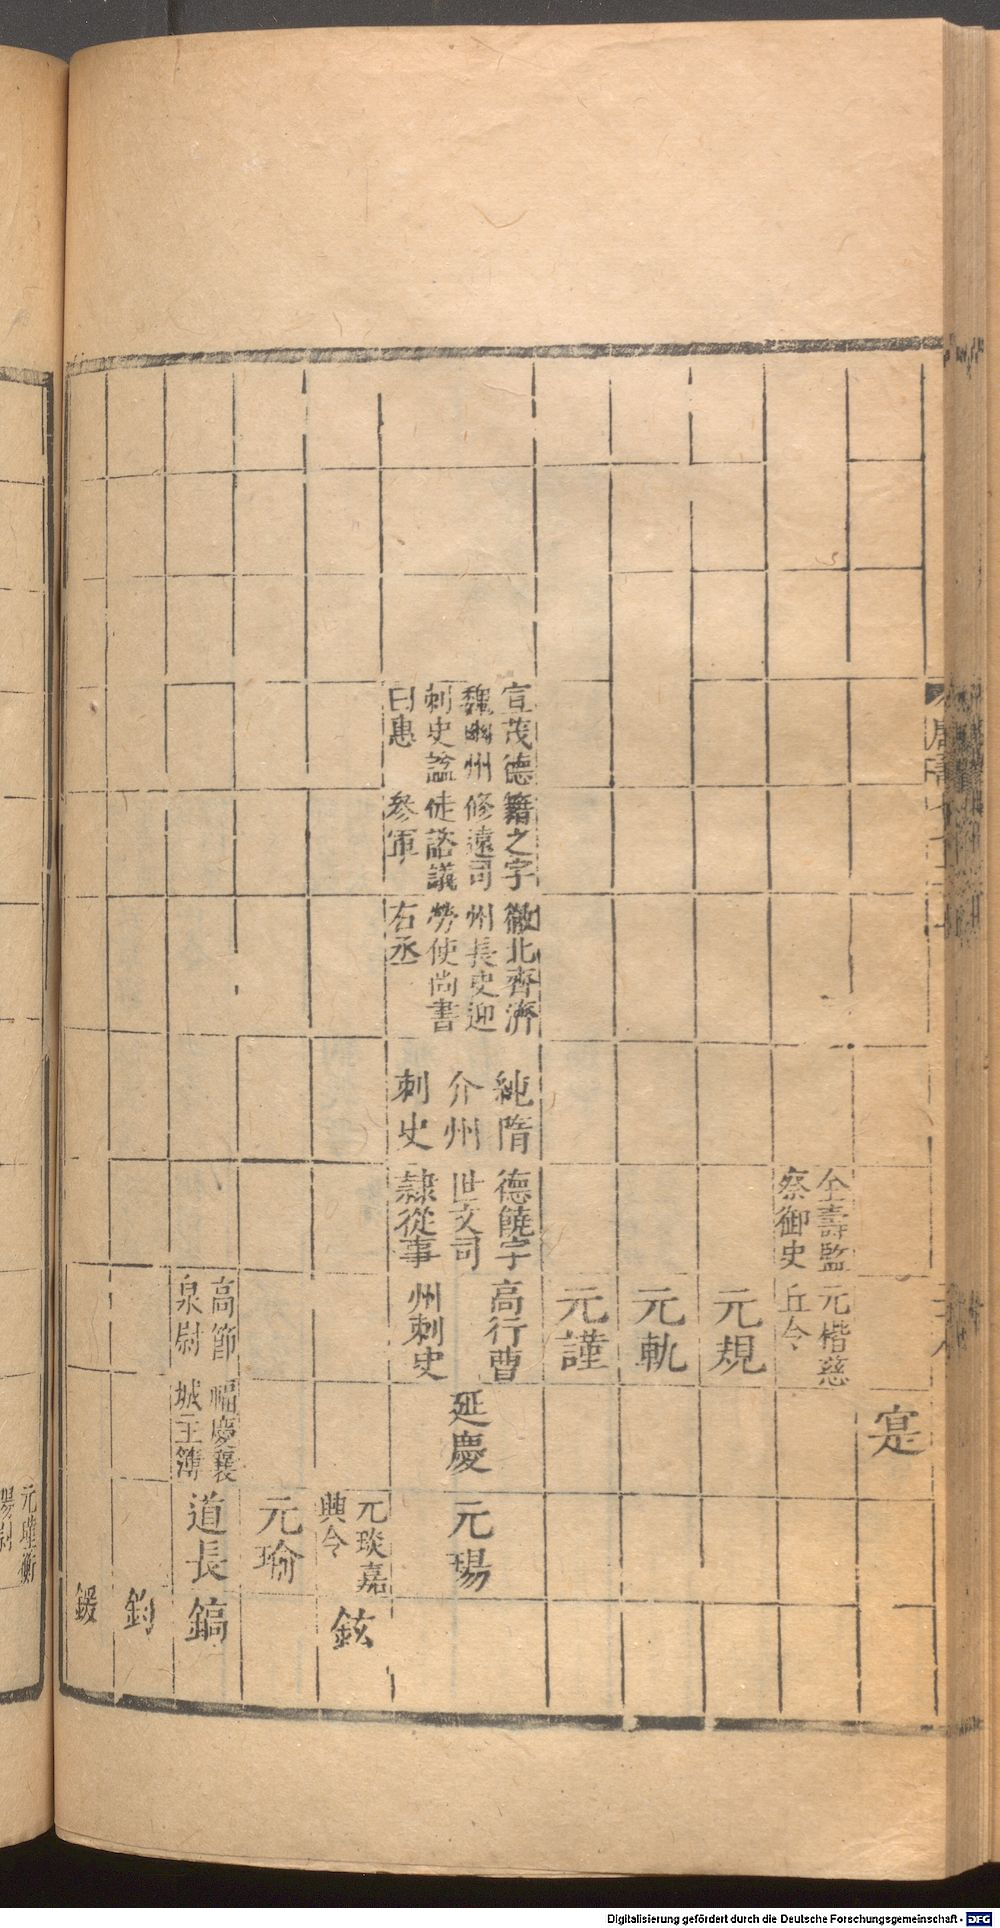 寔
全壽監
察御史
元楷慈
丘令
元規
元軌
元謹
宣茂德
魏幽州
刺史諡
曰惠
籍之字
修遠司
徒諮議
參軍
徹北齊濟
州長史迎
勞使尚書
右丞
純隋
介州
刺史
德饒字
世文司
隷從事
高行曹
州刺史
延慶
元瑒
元琰嘉
興令
鉉
元瑜
高節
泉尉
幅慶襄
城主簿
道長
鎬
鈞
鍰
元瓘衡
Digitalisierung gefördert durch die Deutsche Forschungsgemeinschaft - DFG